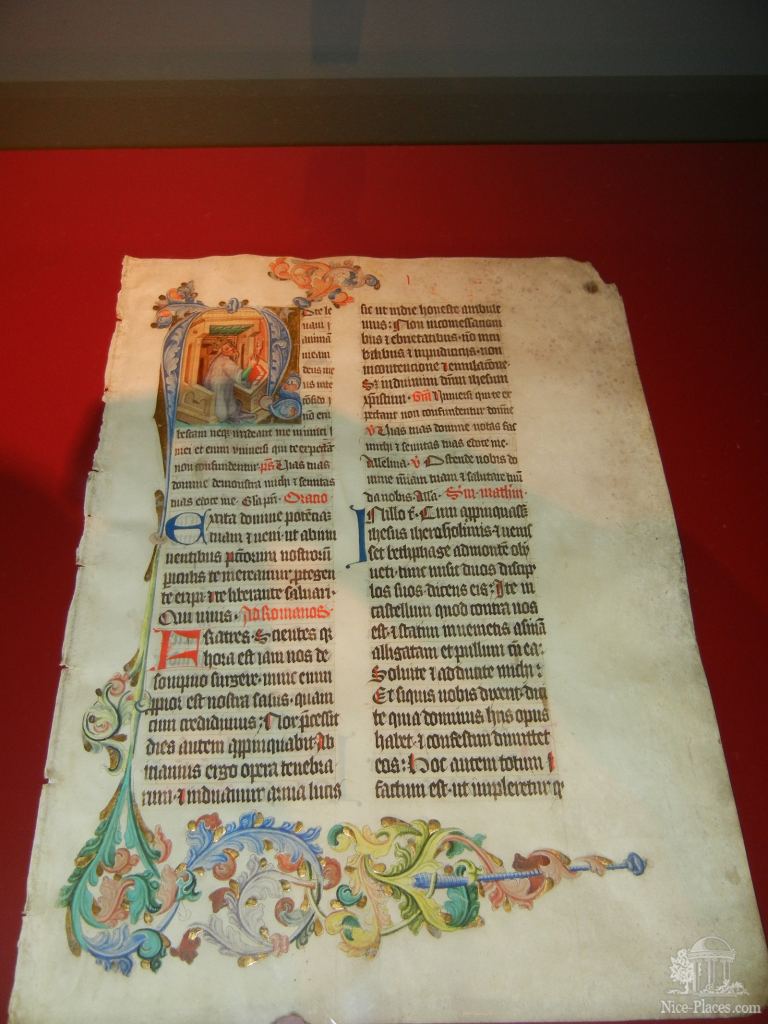 Ad te le
uaui
animā
meam
deus me
us in te
cōfido
nō eru
bescam neq irrideant me inimici
mei et enim vniuersi qui te expectāt
non confundentur ps Vias tuas
domine demonstra michi ⁊ semitas
tuas edoce me. Gla pri. Oratio
Excita domine potēciā
tuam ⁊ ueni. ut ab inmi
nentibus pctorum nostrorū
periculis te mereamur protegen
te eripi ⁊ te liberante saluari.
Qui uiuis. Ad Romanos.
Fratres. Scientes qr
hora est iam nos de
sompno surgere. nunc enim
ppior est nostra salus. quam
cum credidimus. Nox pcessit
dies autem appinquabit. Ab
iciamus ergo opera tenebra
rum. ⁊ induamur arma lucis
sic ut in die honeste ambule
mus. Non in comessationi
bus ⁊ ebrietatibus. nō in cu
bilibus ⁊ inpudicicijs. non
in contencione ⁊ emulacōne.
S induimini dnm ihesum
xpistum. Gra Vniuersi qui te ex
pectant non confundentur domine
V Vias tuas domine notas fac
michi ⁊ semitas tuas edoce me.
Alleluia. V Ostende nobis do
mine miam tuam ⁊ salutare tuū
da nobis. Alla. Sm mathm
In illo t. Cum appinquasset
ihesus iherosolimis ⁊ uenis
set bethphage ad monte oly
ueti. tunc misit duos discip
los suos dicens eis. Ite in
castellum quod contra uos
est. ⁊ statim inuenietis asinā
alligatam et pullum cū ea.
Soluite ⁊ adducite michi.
Et si quis uobis dixerit. dici
te quia dominus hijs opus
habet. ⁊ confestim dimittet
eos. Hoc autem totum
factum est. ut impleretur q
Nice-Places.com